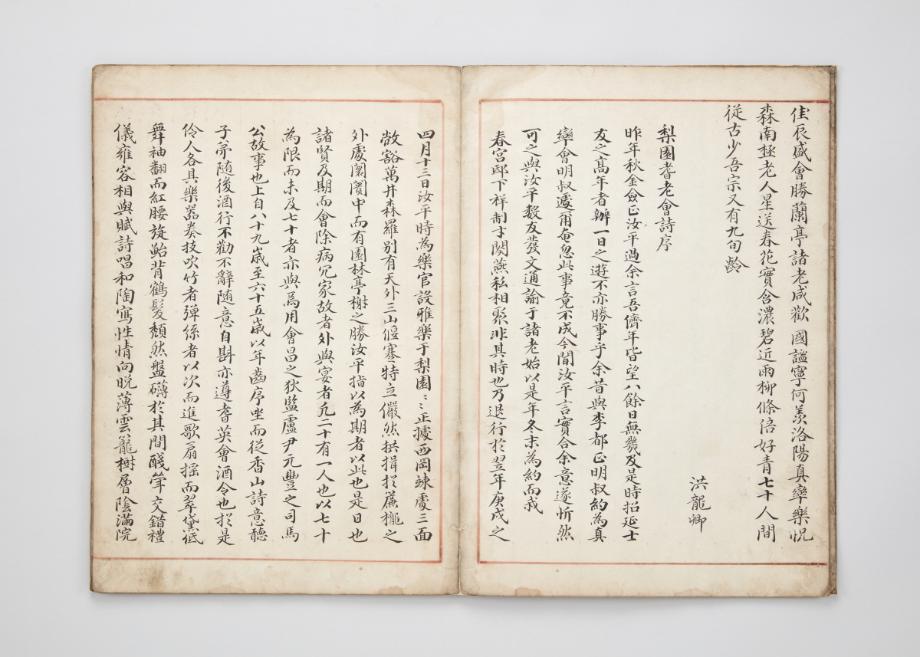 佳辰盛會勝蘭亭諸老咸歡 國謐寧何羨洛陽真率樂怳
森南極老人星送春花實含濃碧近雨柳條倍好青七十人間
從古少吾宗又有九旬齡
洪龍卿
梨園耆老會詩序
昨年秋金僉正汝平過余言吾儕年皆望八餘日無幾及是時招延士
友之高年者辦一日之遊不亦勝事乎余昔與李都正明叔約為真
率會明叔遽爾奄忽此事竟不成今聞汝平言實合余意遂忻然
可之與汝平數友發文通諭于諸老始以是年冬末為約而我
春宮邸下祥制才闋燕私相聚非其時也乃退行於翌年庚戌之
四月十三日汝平時為樂官設雅樂于梨園〻正據西岡竦處三面
敞豁萬井森羅別有天外三山偃蹇特立儼然拱揖於蒼櫳之
外處闤闠中而有園林亭榭之勝汝平指以為期者以此也是日也
諸賢及期而會除病冗家故者外與宴者凡二十有一人也以七十
為限而未及七十者亦與焉用會昌之狄監盧尹元豐之司馬
公故事也上自八十九歲至六十五歲以年齒序坐而從香山詩意聽
子弟隨後酒行不勸不辭隨意自斟亦遵耆英會酒令也於是
伶人各具樂器奏技吹竹者彈絲者以次而進歌扇揺而翠黛低
舞袖翻而紅腰旋鮐背鶴髮頹然盤礴於其間醆斝交錯禮
儀雍容相與賦詩唱和陶寫性情向晩薄雲籠樹層陰滿院